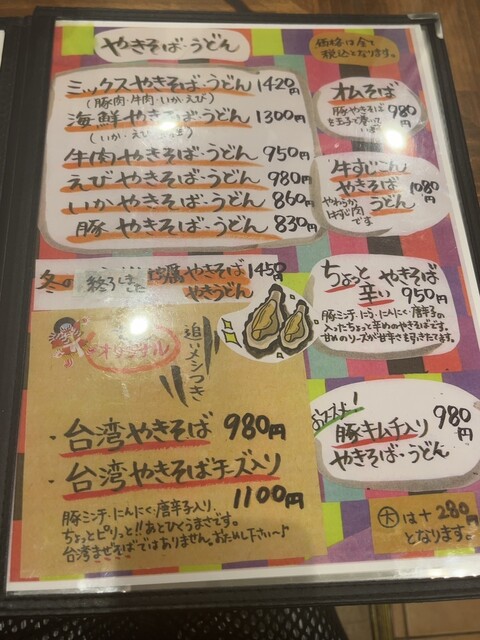 やきそば・うどん
価格は全て
税込となります。
ミックスやきそば・うどん 1420円
(豚肉・牛肉・いか・えび)
海鮮やきそば・うどん 1300円
(いか・えび
牛肉やきそば・うどん 950円
えびやきそば・うどん 980円
いかやきそば・うどん 860円
豚やきそば・うどん 830円
オムそば
豚やきそば 980円
牛すじこん
やきそば
うどん 1080円
やわらか
牛すじ肉
です
冬の 終了しました やきそば 1450円
やきうどん
ちょっと やきそば
辛い 950円
豚ミンチ・にら・にんにく・唐辛子の
入ったちょっと辛めのやきそばです。
甘めのソースが甘辛さを引きたてます。
オリジナル
追いメシつき
・台湾やきそば 980円
・台湾やきそばチーズ入り
1100円
豚ミンチ・にんにく・唐辛子入り。
ちょっとピリっと!!あとひくうまさです。
台湾まぜそばではありません。おためし下さい〜♪
豚キムチ入り 980円
やきそば・うどん
大は+280円
となります。